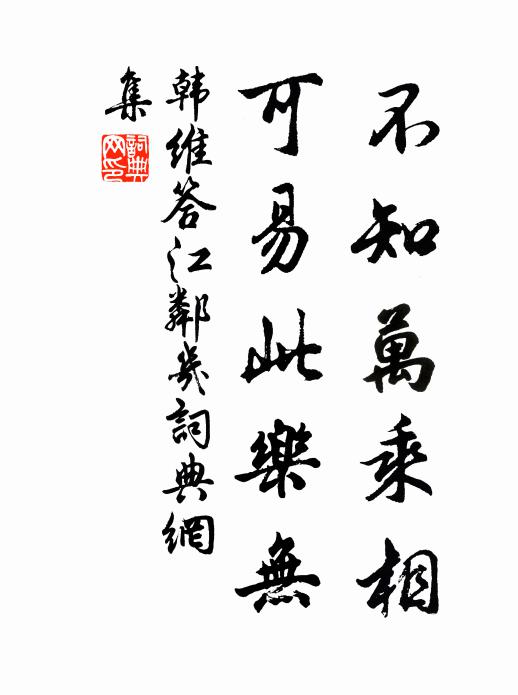 不知萬乘相
可易此樂無
韩維答江鄰幾詞典網
集
詞典
网印